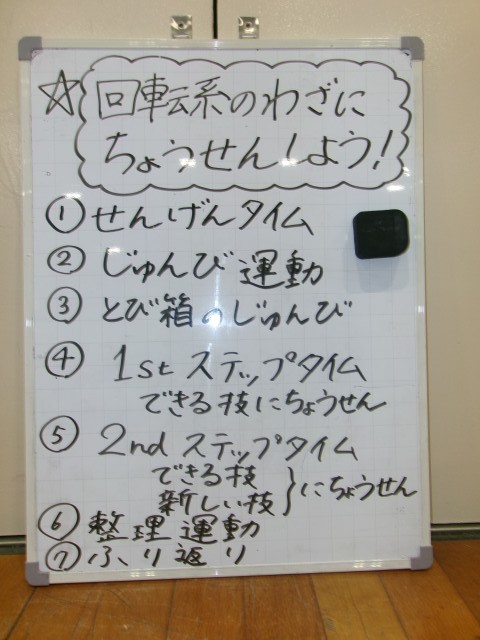 ☆ 回転系のわざに
ちょうせんしよう!
① せんげんタイム
② じゅんび運動
③ とび箱のじゅんび
④ 1st ステップタイム
できる技にちょうせん
⑤ 2nd ステップタイム
できる技
新しい技 } にちょうせん
⑥ 整理運動
⑦ ふり返り